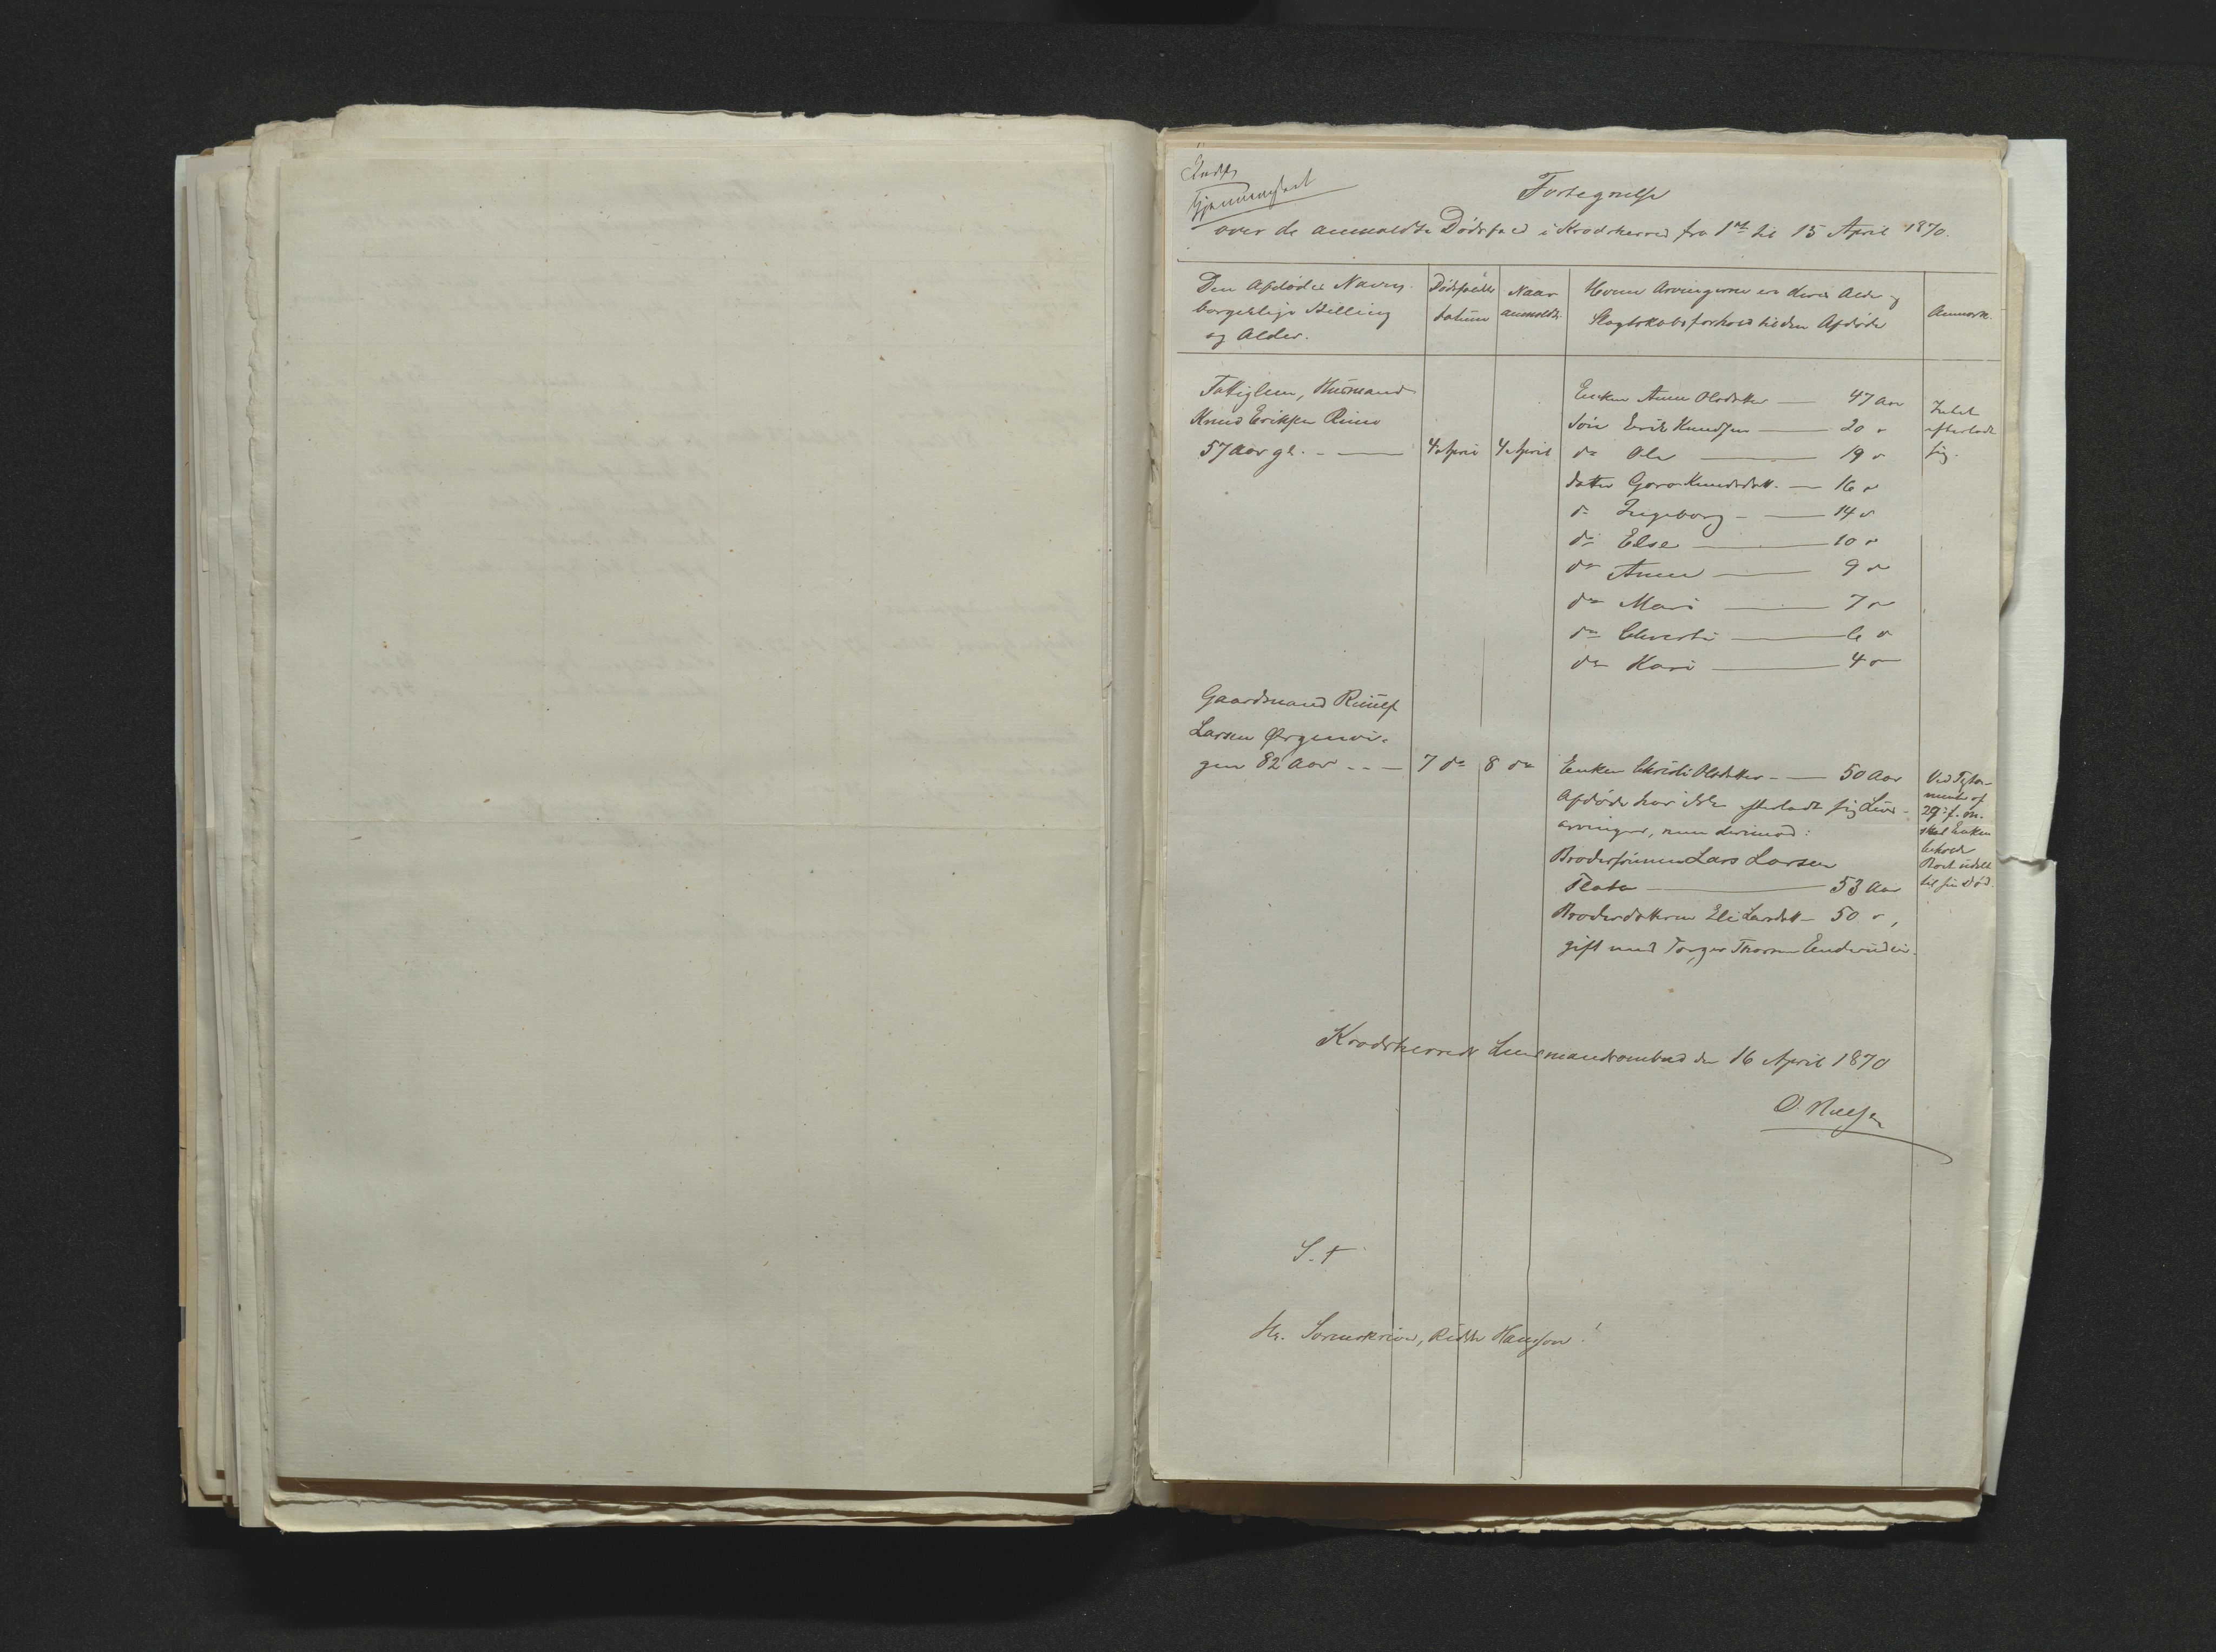 Fortegnelse
over de anmeldte Dødsfald i Krodsherred fra 1ste til 15 April 1870.
Den Afdødes Navn,
borgerlige Stilling
og Alder.
Dødsfaldets
datum
Naar
anmeldt.
Hvem Arvingerne ere deres Alder og
Slægtskabsforhold til den Afdøde
Anmærk.
Fattiglem, Huusmand
Knud Eriksen
57 Aar gl. - —
4 April
4 April
Enken Anne Olsdatter — 47 Aar
Søn Erik Knudsen — 20 "
do Ole — 19 "
datter Goro Knudsdatt. — 16 "
do Ingeborg — 14 "
do Else — 10 "
do Anne — 9 "
do Mari — 7 "
do Christi — 6 "
do Kari — 4 "
Intet
efterladt
sig.
Gaardmand Riuulf
Larsen Ørgenvi-
gen 82 Aar - - —
7 do
8 do
Enken Christi Olsdatter - — 50 Aar
Afdøde har ikke efterladt sig Livs-
arvinger, men derimod:
Brodersønnen Lars Larsen
Flata — 53 Aar
Broderdatteren Eli Larsdatt — 50 ",
gift med Torger Thorsen
Ved Testa-
mente af
29 f. M.
skal Enken
beholde
Boet udelt
til sin Død.
Krodsherreds Lensmandsombud den 16 April 1870
O. Nielsen
S. T.
Hr. Sorenskriver, Ridder Hansson!